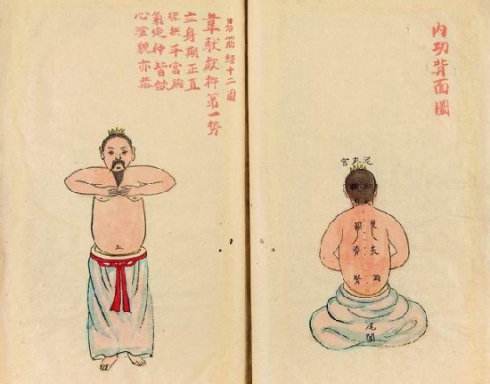 內功背面圖
尾閭
易筋經十二圖
韋馱獻杵第一勢
立身期正直
環拱手當胸
氣定神皆斂
心澄貌亦恭